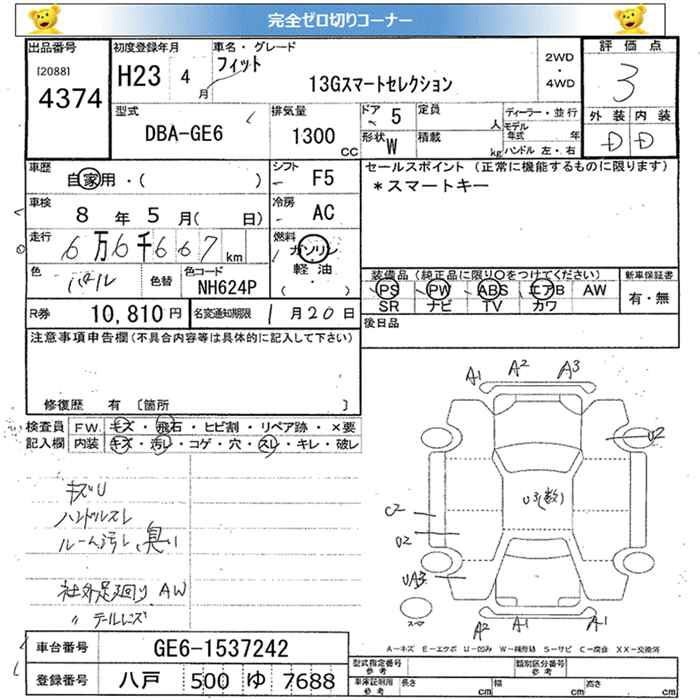 完全ゼロ切りコーナー
出品番号 初度登録年月 車名・グレード 評価点
[2088] 4374 H23 4月 フィット 13Gスマートセレクション 2WD・4WD 3
型式 DBA-GE6 排気量 1300CC ドア 5 定員 人 ディーラー・並行 外装 内装
形状 W 積載 kg モデル年式 年 ハンドル 左・右 D D
車歴 自家用・( ) シフト F5 セールスポイント (正常に機能するものに限ります)
*スマートキー
車検 8年5月( 日) 冷房 AC
走行 6万6千667km 燃料 ガソリン 軽油 (・)
色 パール 色替 色コード NH624P 装備品(純正品に限り○をつけてください) 新車保証書
PS PW ABS エアB AW 有・無
SR ナビ TV カワ
R券 10,810円 名変通知期限 1月20日 後日品
注意事項申告欄(不具合内容等は具体的に記入して下さい)
修復歴 有 〔箇所 〕
検査員 FW. キズ・飛石・ヒビ割・リペア跡・×要
記入欄 内装 キズ・汚レ・コゲ・穴・スレ・キレ・破レ
A1 A2 A3
U2
U3(数)
C2
U2
UA3
A2 A1 A1
キズU
ハンドルスレ
ルーム汚レ、臭い
社外足廻り AW
〃 テールレンズ
A-キズ E-エクボ U-凹み W-補修跡 S-サビ C-腐食 XX-交換済
車台番号 GE6-1537242
登録番号 八戸 500 ゆ 7688
型式指定番号 参考 類別区分番号 参考
車庫証明用 参考 長さ cm 幅 cm 高さ cm